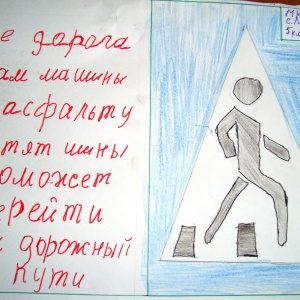 е дорога
ам машины
асфальту
тят шины
оможет
ерейти
дорожный
пути
5 кл